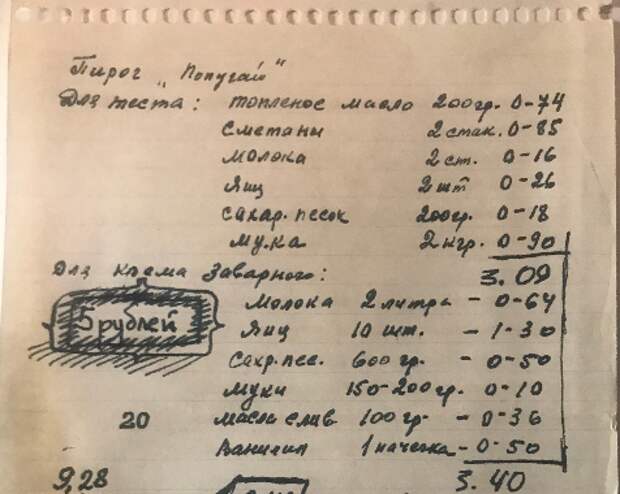 Пирог „Попугай"
Для теста: топленое масло 200гр. 0-74
сметаны 2 стак. 0-85
молока 2 ст. 0-16
Яиц 2 шт 0-26
сахар. песок 200гр. 0-18
мука 2 кгр. 0-90
3.09
Для крема заварного:
молока 2 литра - 0-64
5 рублей
Яиц 10 шт. - 1-30
Сахр. пес. 600 гр. - 0-50
муки 150-200 гр. 0-10
20 масла слив 100 гр - 0-36
Ванилин 1 пачечка - 0-50
9,28 3.40